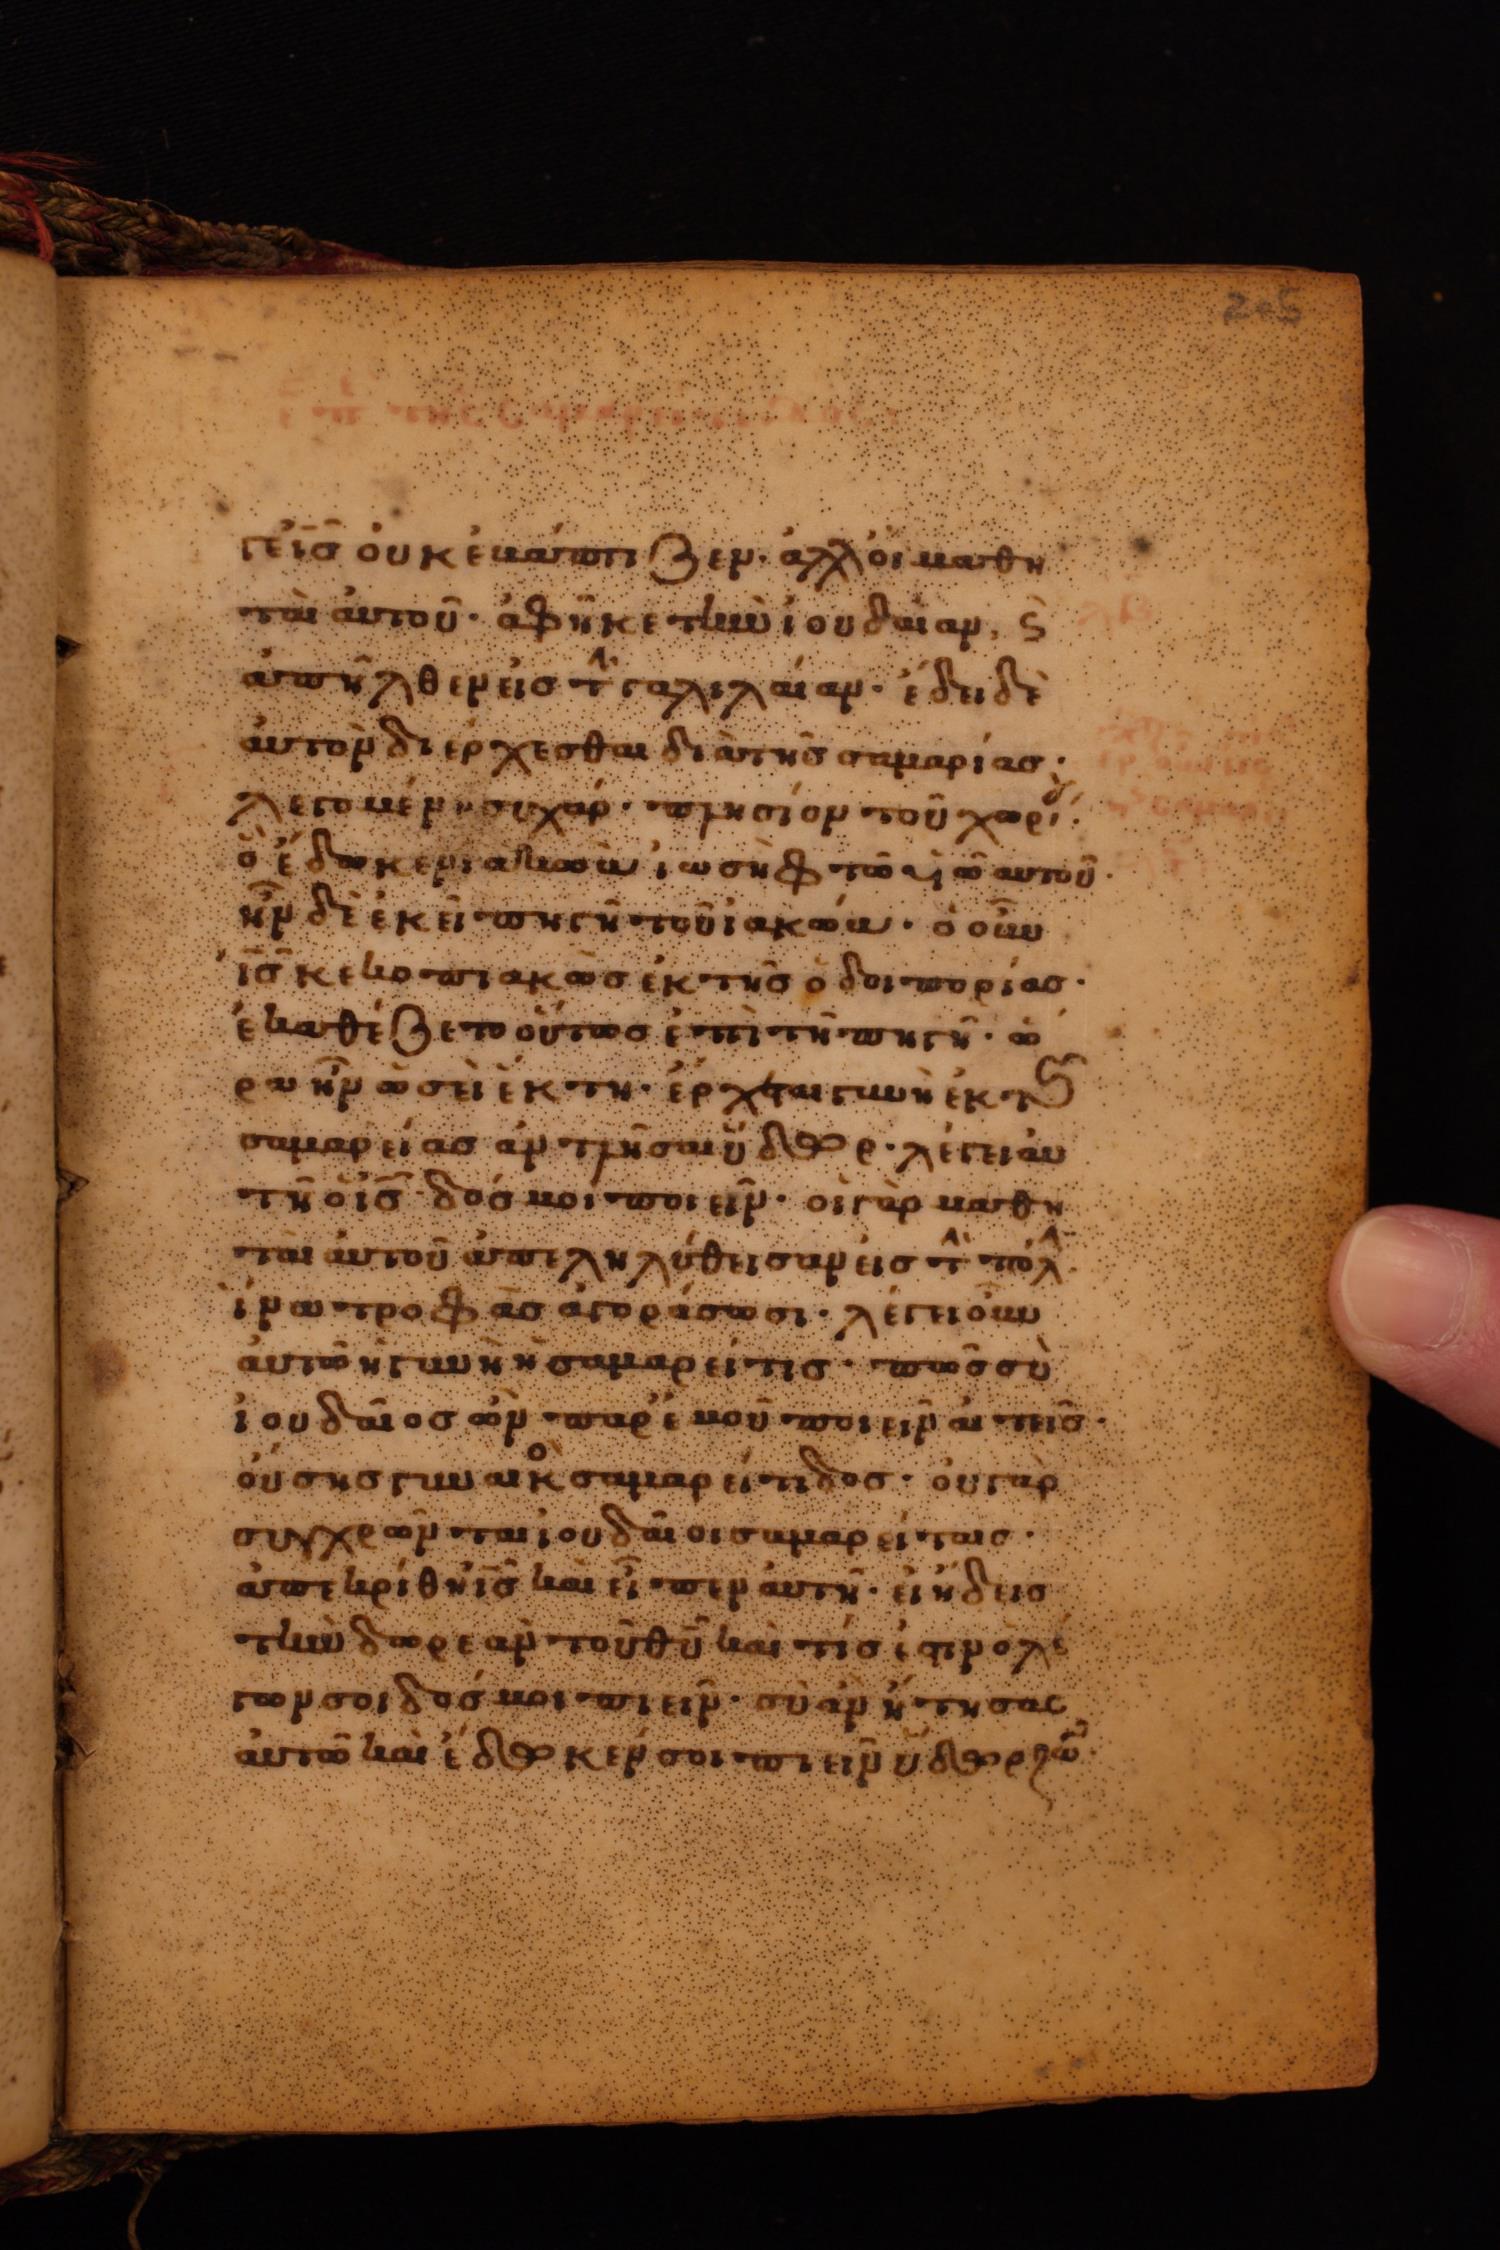 205
γε ἰς οὐκ ἐβάπτιζεν· ἀλλ οἱ μαθη
ταὶ αὐτοῦ· ἀφῆκε τὴν ἰουδαίαν, ϛ
ἀπῆλθεν εἰς τ γαλιλαίαν· ἔδει δὲ
αὐτὸν διέρχεσθαι διὰ τῆς σαμαρίας·
λεγομένην συχάρ· πλησίον τοῦ χωρί
ὃ ἔδωκεν ἰακὼβ ἰωσὴφ τῶ υἱῶ αὐτοῦ·
ἦν δὲ ἐκεῖ πηγὴ τοῦ ἰακώβ· ὁ οὖν
ἰς κεκοπιακὼς ἐκ τῆς ὁδοιπορίας·
ἐκαθέζετο οὕτως ἐπὶ τῆ πηγῆ· ὥ
ρα ἦν ὡσεὶ ἕκτη· ἔρχεται γυνὴ ἐκ τῆς
σαμαρείας ἀντλῆσαι ὕδωρ· λέγει αὐ
τῆ ὁ ἰς δός μοι ποιεῖν· οἱ γὰρ μαθη
ταὶ αὐτοῦ ἀπεληλύθεισαν εἰς τ πόλ
ἵνα τροφὰς ἀγοράσωσι· λέγει οὖν
αὐτῶ ἡ γυνὴ ἡ σαμαρείτις· πῶς σὺ
ἰουδαῖος ὢν παρ ἐμοῦ ποιεῖν αἰτεῖς·
οὔσης γυναικο σαμαρείτιδος· οὐ γὰρ
συγχρῶνται ἰουδαῖοι σαμαρείταις·
ἀπεκρίθη ἰς καὶ εἶπεν αὐτῆ· εἰ ἤδεις
τὴν δωρεὰν τοῦ θυ καὶ τίς ἐστιν ὁ λέ
γων σοι δός μοι πιεῖν· σὺ ἂν ἤτησας
αὐτῶ καὶ ἔδωκέν σοι πιεῖν ὕδωρ ζῶ